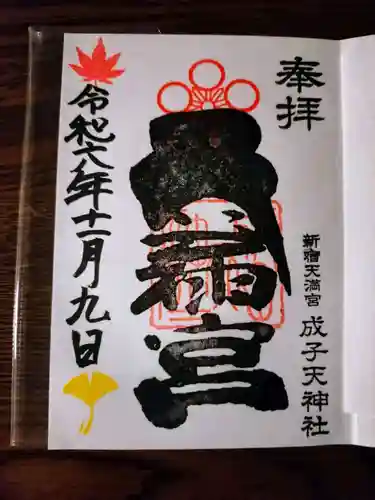 奉拝
新宿天満宮
成子天神社
天満宮
令和六年十一月九日